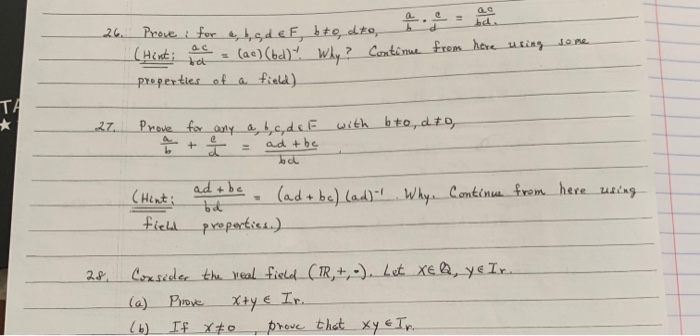 26. Prove : for a, b, c, d ∈ F, b≠0, d≠0, a/b · c/d = ac/bd.
(Hint: ac/bd = (ac)(bd)⁻¹. Why? Continue from here using some
properties of a field)
TA
27. Prove for any a, b, c, d ∈ F with b≠0, d≠0,
a/b + c/d = ad + bc/bd
(Hint: ad + bc/bd = (ad + bc)(ad)⁻¹. Why. Continue from here using
field properties.)
28. Consider the real field (ℝ, +, ·). Let x∈ℚ, y∈Ir.
(a) Prove x+y ∈ Ir.
(b) If x≠0 prove that xy ∈ Ir.